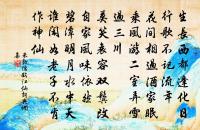 生長西都逢化日
行歌不記流年
花間相過酒家眠
乘風游二室弄雪
過三川
莫笑衰容雙鬢改
自家風味依然
碧潭明月水中天
誰閑如老子不肯
作神仙
朱敦儒臨江仙